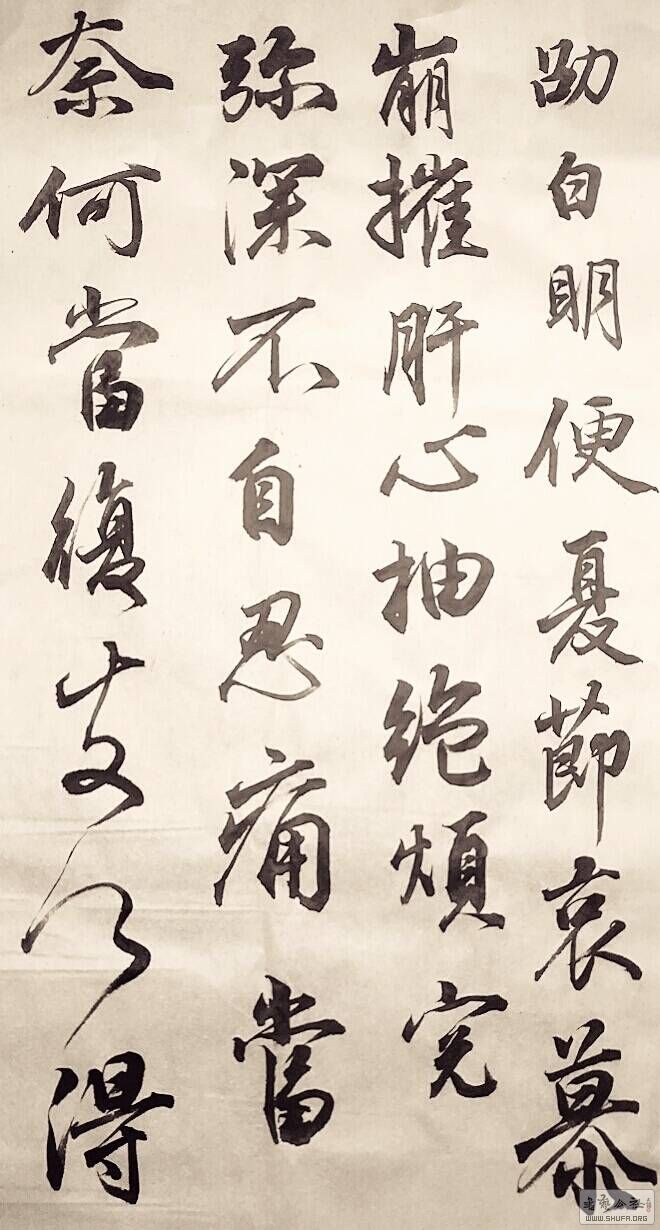 劭白明便夏節哀慕
崩摧肝心抽絶煩完
弥深不自忍痛當
奈何當復支得
書藝公社
WWW.SHUFA.ORG